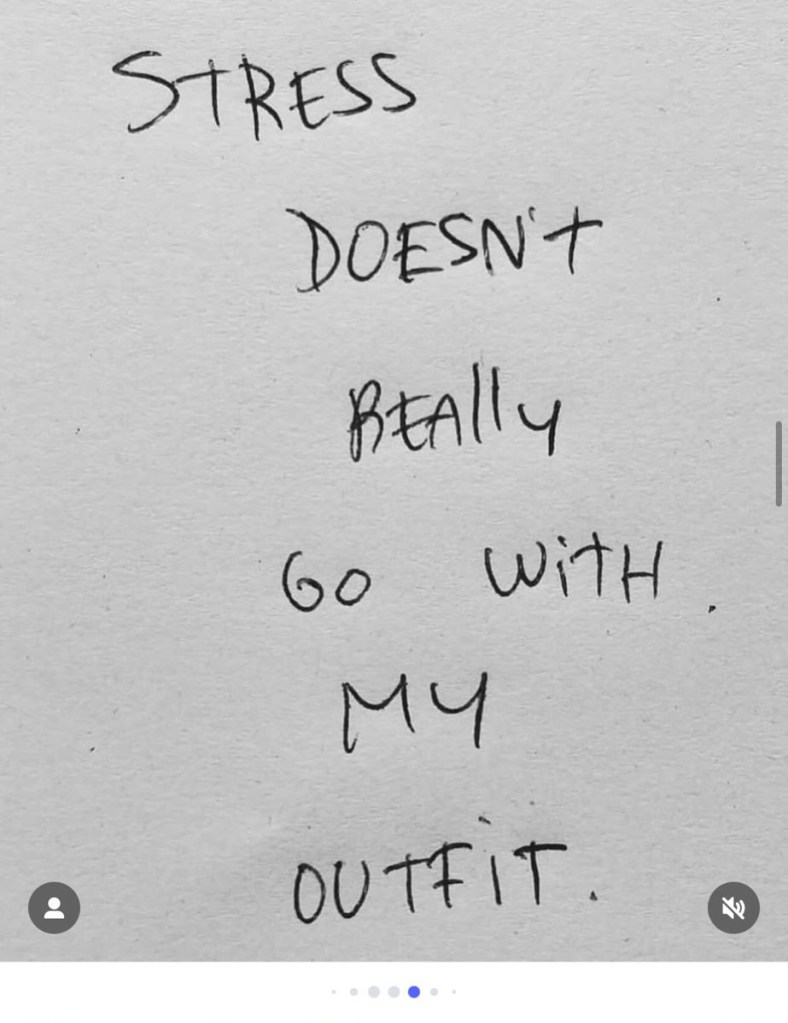 STRESS
DOESN'T
REAlly
GO WiTH.
MY
OUTFiT.